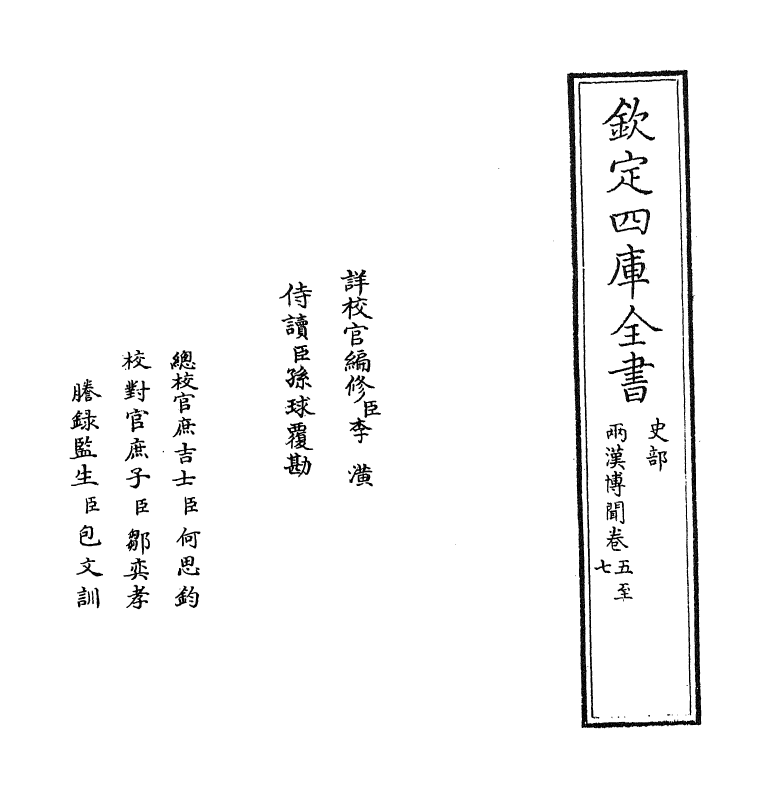 欽定四庫全書
史部
兩漢博聞卷五至七
詳校官編修臣李潢
侍讀臣孫球覆勘
總校官庶吉士臣何思鈞
校對官庶子臣鄒奕孝
謄録監生臣包文訓